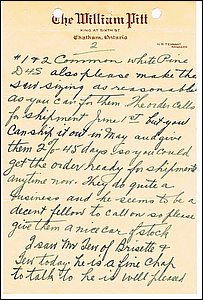 The William Pitt
KING AT SIXTH ST.
Chatham, Ontario
2
#1 & 2 Common white Pine
D4S also please make the
sizing as reasonable
as you can for them. The order calls
for shipment June 1st, but you
can ship it out in May and give
them 2% - 45 days, so you could
get the order ready for shipment
anytime now. They do quite a
business and he seems to be a
decent fellow to call on so please
give them a nice car of stock
I saw Mr Gew of Brisette &
Gew today, he is a fine chap
to talk to he is well pleased